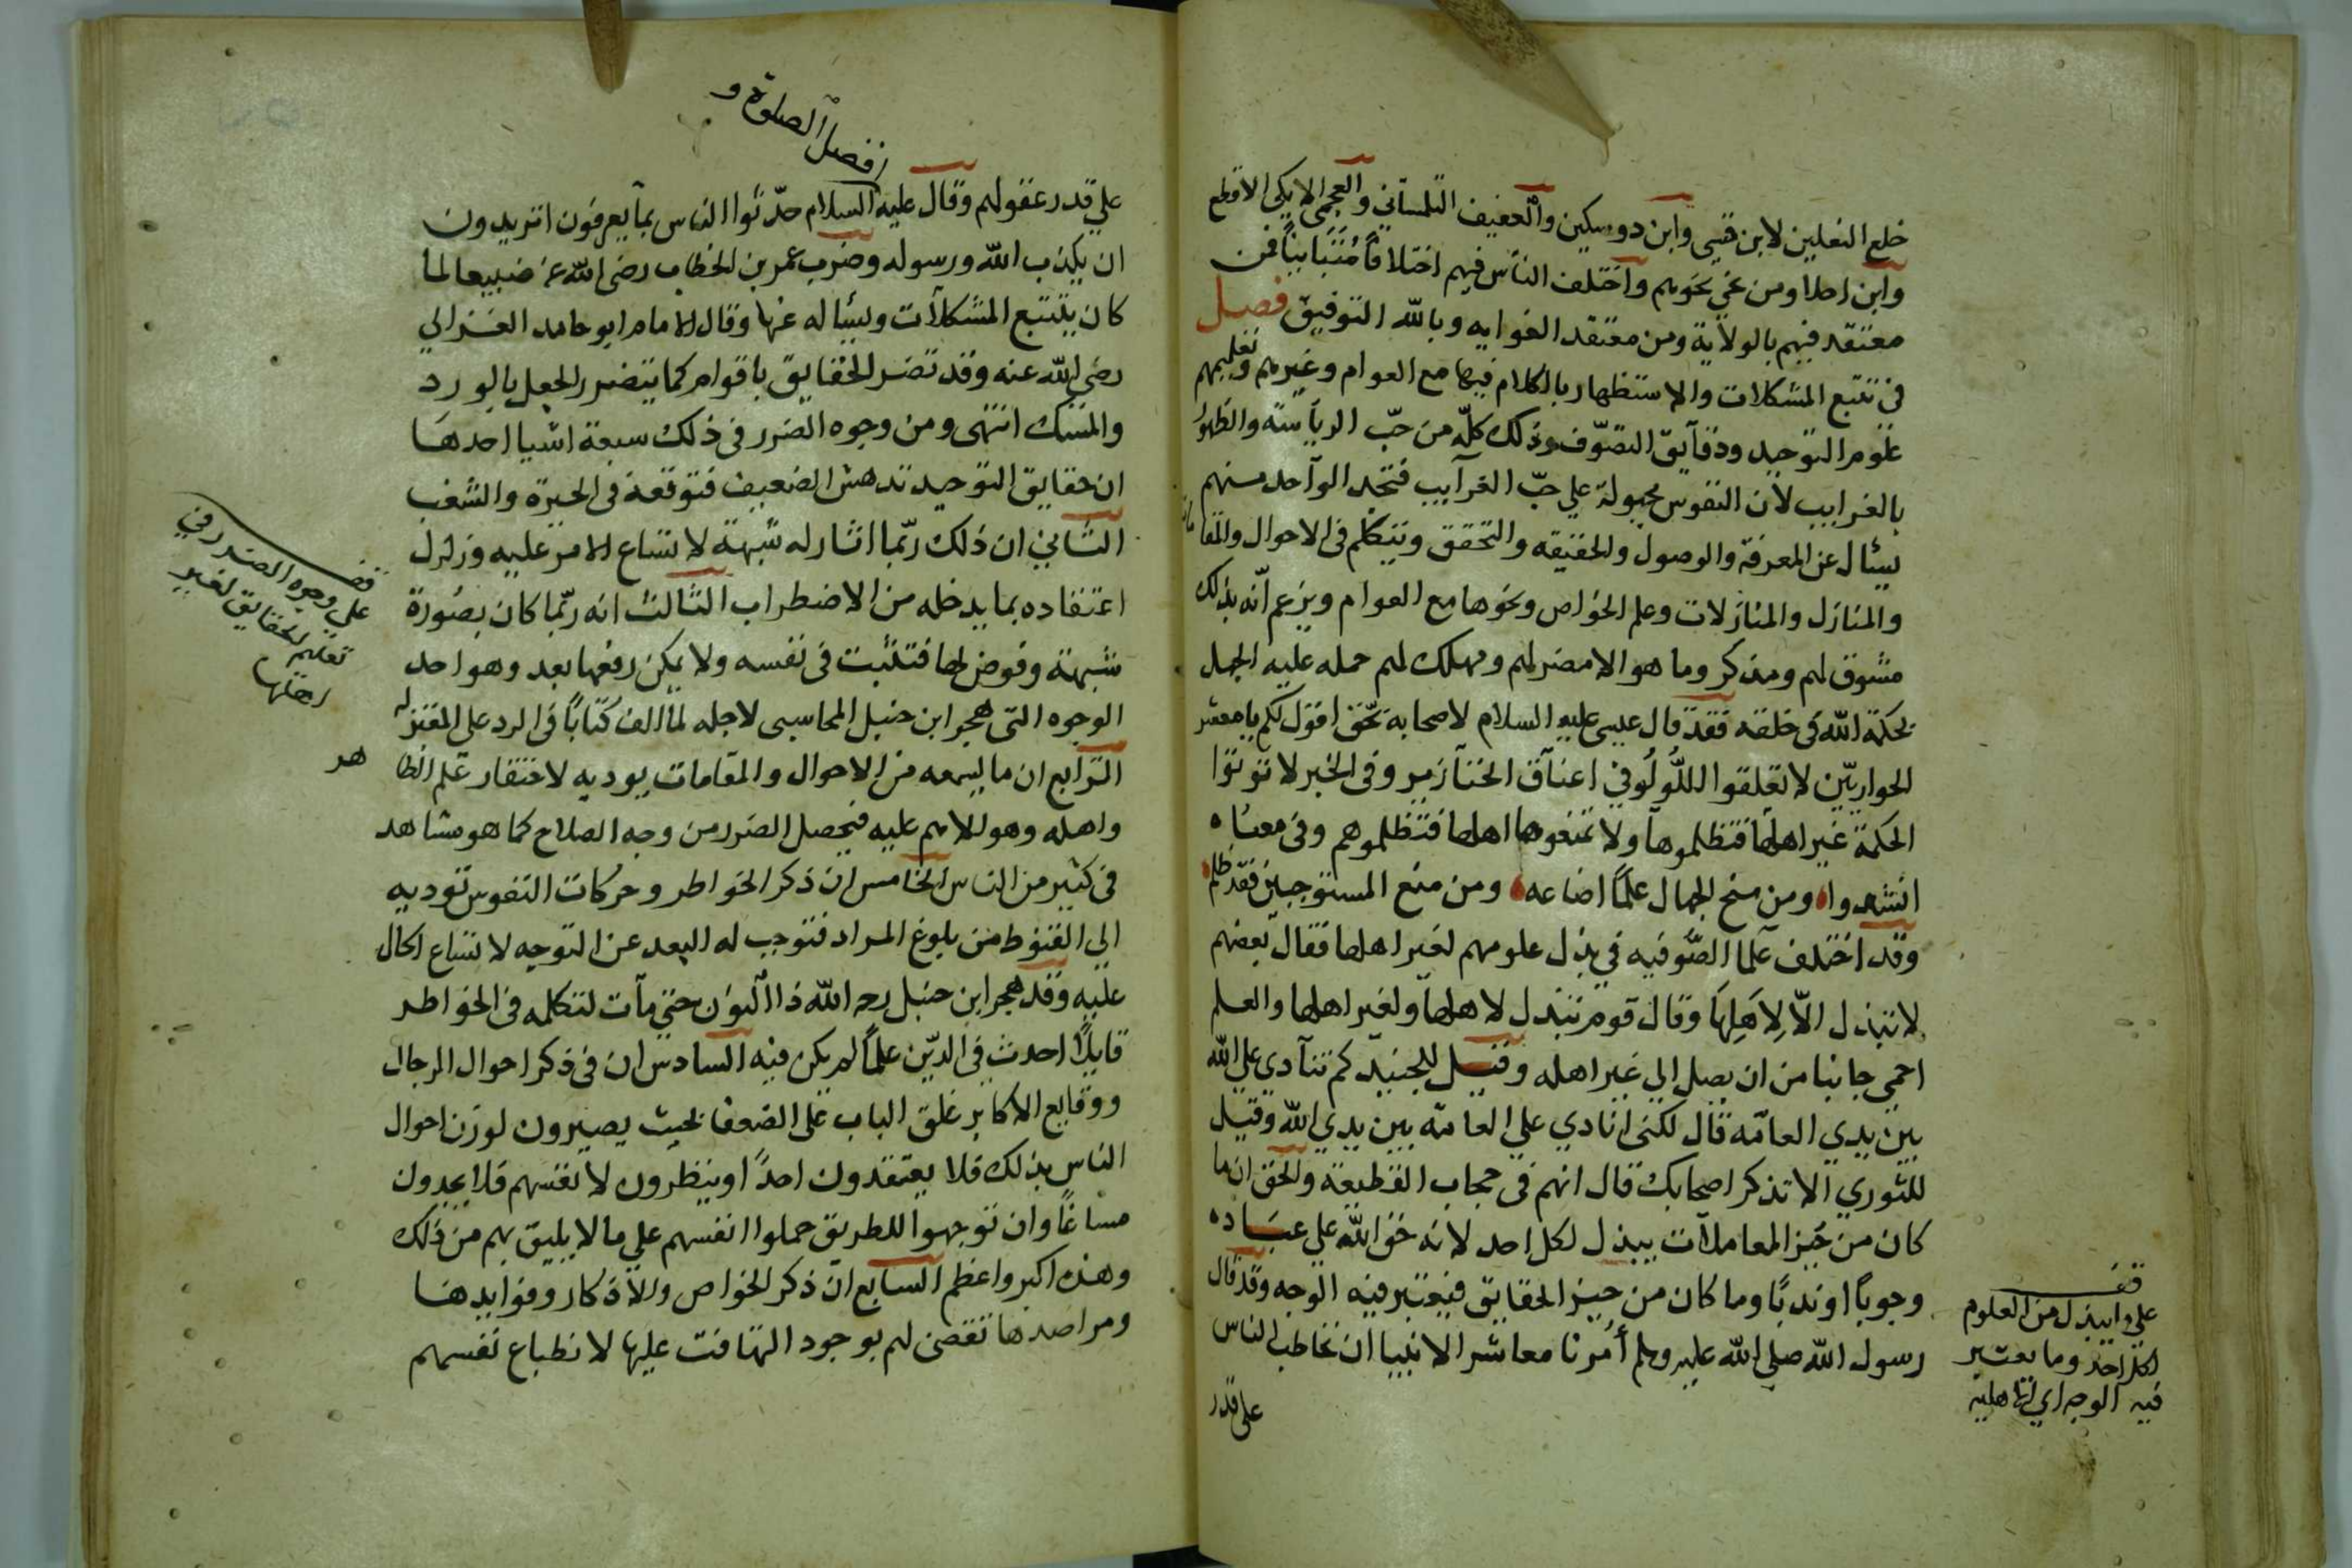 خلع النعلين لابن قسي وابن دوسكين والعفيف التلمساني والعجمي الايكي الاقطع
وابن احلا ومن نحي نحوهم واختلف الناس فيهم اختلافاً مُتَبايناً فمن
معتقد فيهم بالولاية ومن معتقد الغوايه وبالله التوفيق فصل
في تتبع المشكلات والاستظهار بالكلام فيها مع العوام وغيرهم وتعليمهم
علوم التوحيد ودقايق التصوّف وذلك كلّه من حبّ الرياسة والظهور
بالغرايب لان النفوس مجبولة علي حبّ الغرآيب فتجد الوآحد منهم
يسئال عن المعرفة والوصول والحقيقه والتحقق ويتكلم في الاحوال والمقامات
والمنازل والمنازلات وعلم الخواص ونحوها مع العوام ويزعم أنّه بذلك
مشوق لهم ومذكر وما هو الا مضر لهم ومهلك لهم حمله عليه الجهل
بحكمة الله في خلقه فقد قال عيسى عليه السلام لاصحابه بحق اقول لكم يا معشر
الحواريّين لا تعلقوا اللُّولُو في اعنآق الخنآزير وفي الخبر لا توتوا
الحكمة غير اهلها فتظلموها ولا تمنعوها اهلها فتظلموهم وفي معناه
انشدوا ومن منح الجهال علماً اضاعه ومن منع المستوجبين فقد ظلم
وقد اختلف علما الصُّوفيه في بذل علومهم لغير اهلها فقال بعضهم
لا تبذل الّا لِاَهلِهَا وقال قوم تبذل لاهلها ولغير اهلها والعلم
احمي جانبا من ان يصل الي غير اهله وقيل للجنيد كم تنآدي علي الله
بين يدي العامّه قال لكني انادي علي العامّه بين يدي الله وقيل
للثوري الا تذكر اصحابك قال انهم في حجاب القطيعة والحق ان ما
كان من حَيز المعاملات يبذل لكل احد لانه حق الله علي عباده
وجوباً او ندبًا وما كان من حيز الحقايق فيعتبر فيه الوجه وقد قال
رسول الله صلي الله عليه وسلم أُمرنا معاشر الانبيا ان نخاطب الناس
علي قدر
قف
علي ما يبذل من العلوم
لكل احد وما يعتبر
فيه الوجه اي التاهليه
افضل الصلوة و
علي قدر عقولهم وقال عليه السلام حدّثوا الناس بما يعرفون اتريدون
ان يكذب الله ورسوله وضرب عمر بن الخطاب رضى الله عنه ضبيعا لما
كان يتتبع المشكلآت ويسئا له عنها وقال الامام ابو حامد الغزالي
رضي الله عنه وقد تضر الحقايق باقوام كما يتضرر الجعل بالورد
والمسك انتهى ومن وجوه الضرر في ذلك سبعة اشيا احدها
ان حقايق التوحيد تدهش الضعيف فتوقعه في الحيرة والشغب
الثاني ان ذلك ربّما اثار له شبهة لاتساع الامر عليه وزلزل
اعتقاده بما يدخله من الاضطراب الثالث انه ربّما كان بصُورة
شبهة وفوض لها فتثبت في نفسه ولا يمكن رفعها بعد وهو احد
الوجوه التي هجر ابن حنبل المحاسبي لاجله لما الف كتاباً في الرد على المعتزله
الرّابع ان ما يسمعه من الاحوال والمقامات يوديه لاحتقار عَلم الظا هر
واهله وهو للاهم عليه فيحصل الضرر من وجه الصلاح كما هو مشاهد
في كثير من الناس الخامس ان ذكر الخواطر وحركات النفوس توديه
الي القنوط من بلوغ المراد فتوجب له البعد عن التوجه لاتساع الحال
عليه وقد هجر ابن حنبل رحه الله ذا النون حتي مآت لتكلمه في الخواطر
قايلًا احدث في الدّين علماً لم يكن فيه السادس ان في ذكر احوال الرجال
ووقايع الاكابر غلق الباب علي الضعفا بحيث يصيرون لوزن احوال
الناس بذلك فلا يعتقدون احدًا او ينظرون لانفسهم فلا يجدون
مساغاً وان توجهوا للطريق حملوا انفسهم علي ما لا يليق بهم من ذلك
وهذه اكبر واعظم السابع ان ذكر الخواص والاذكار وفوايدها
ومراصدها تقضى لهم بوجود التهافت عليها لانطباع نفسهم
قف
علي وجوه الضرر في
تعليم الحقايق لغير
اهلها